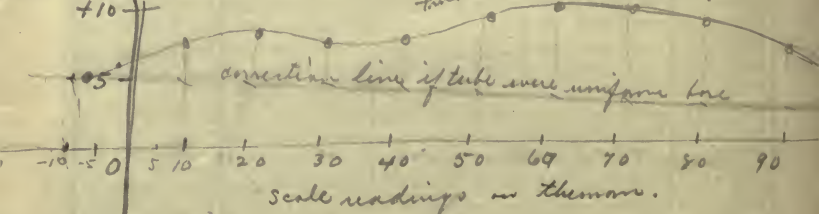 +10
5
correction line if tube were uniform bore
-10 -5 0 5 10 20 30 40 50 60 70 80 90
scale readings on themom.